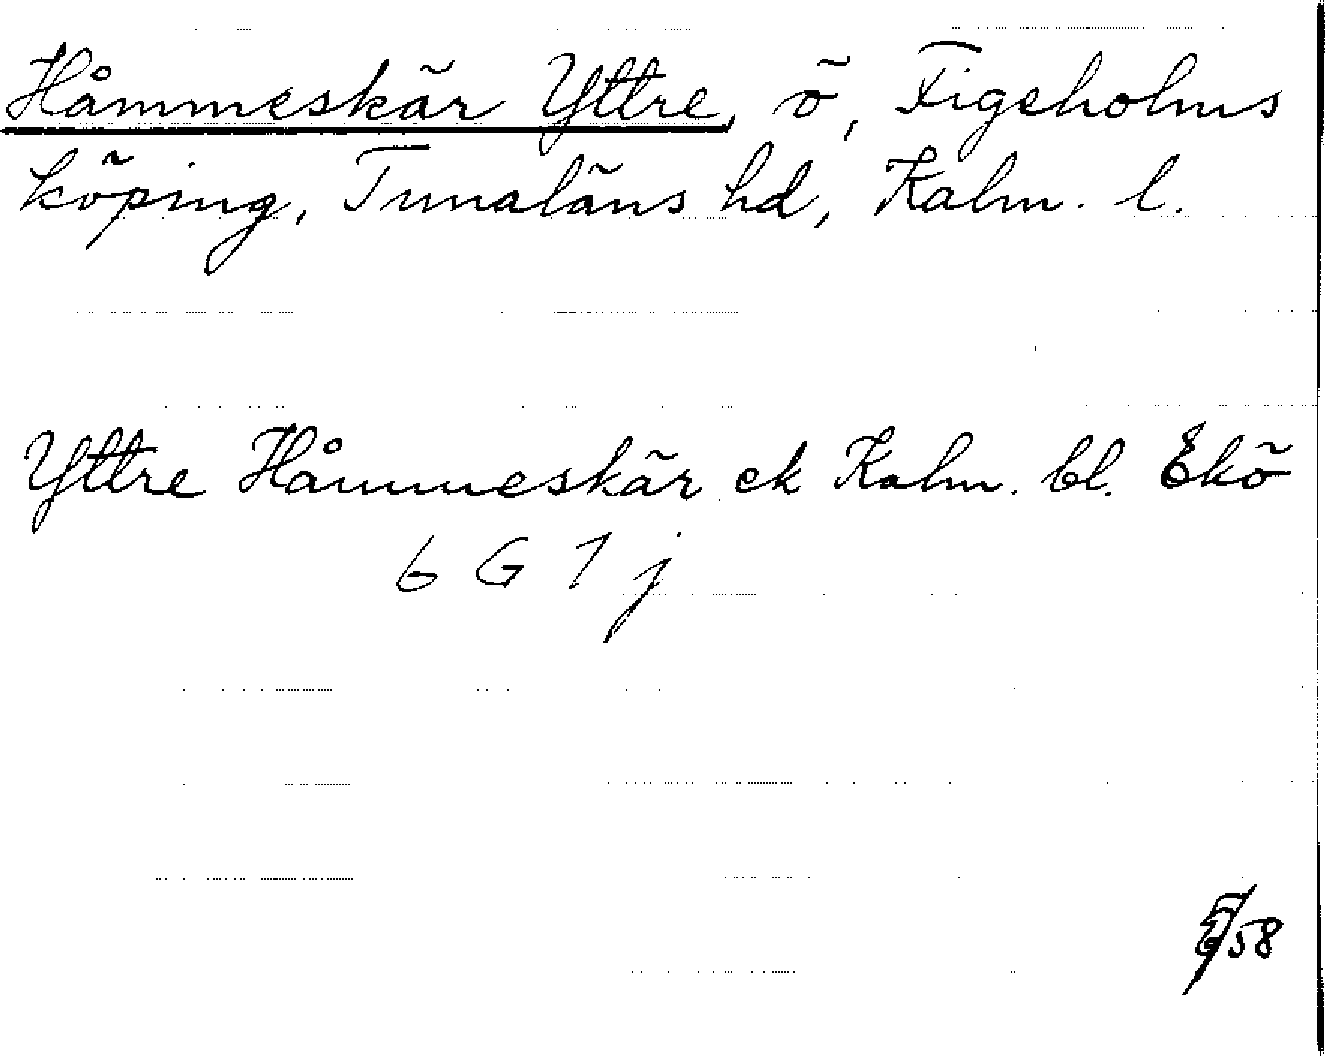 Håmmeskär Yttre, ö, Figeholms
köping, Tunaläns hd, Kalm. l.
Yttre Håmmeskär ek Kalm. bl. Ekö
6 G 7 j
58